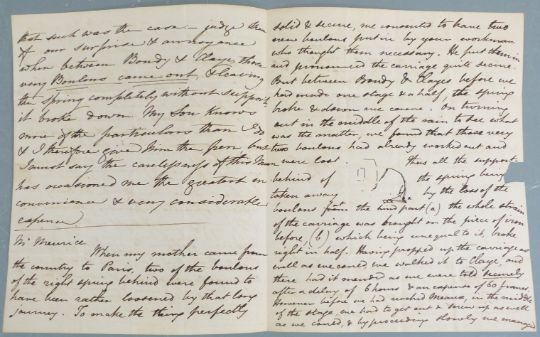 that such was the case – judge then
of our surprise & annoyance
when between Bondy & Claye, those
very Boulons came out & leaving
the spring completely without support
it broke down. My Son knows
more of the particulars than I do
& I therefore give him the
I must say the carelessness of this Man
has occasioned me the greatest in
convenience & very considerable
expence
Mr Maurice.
When my mother came from
the country to Paris, two of the boulons
of the right spring behind were found to
have been rather loosened by that long
journey. To make the thing perfectly
solid & secure, we consented to have two
new boulons put in by your workman
who thought them necessary. He put them in
and pronounced the carriage quite secure.
But between Bondy & Claye before we
had made one stage & a half, the spring
broke & down we came. On turning
out in the middle of the rain to see what
was the matter, we found that these very
two boulons had already worked out and
were lost thus all the support
behind of the spring being
taken away by the loss of the
boulons from the hind part (a) the whole strain
of the carriage was brought on the piece of iron
before, (b) which being unequal to it, broke
right in half. Having propped up the carriage as
well as we could we walked it to Claye, and
there had it mended as we were told securely
after a delay of 6 hours & an expense of 60 francs.
However before we had reached Meaux, in the middle
of the stage, we had to get out & screw up as well
as we could, & by proceeding slowly we managed